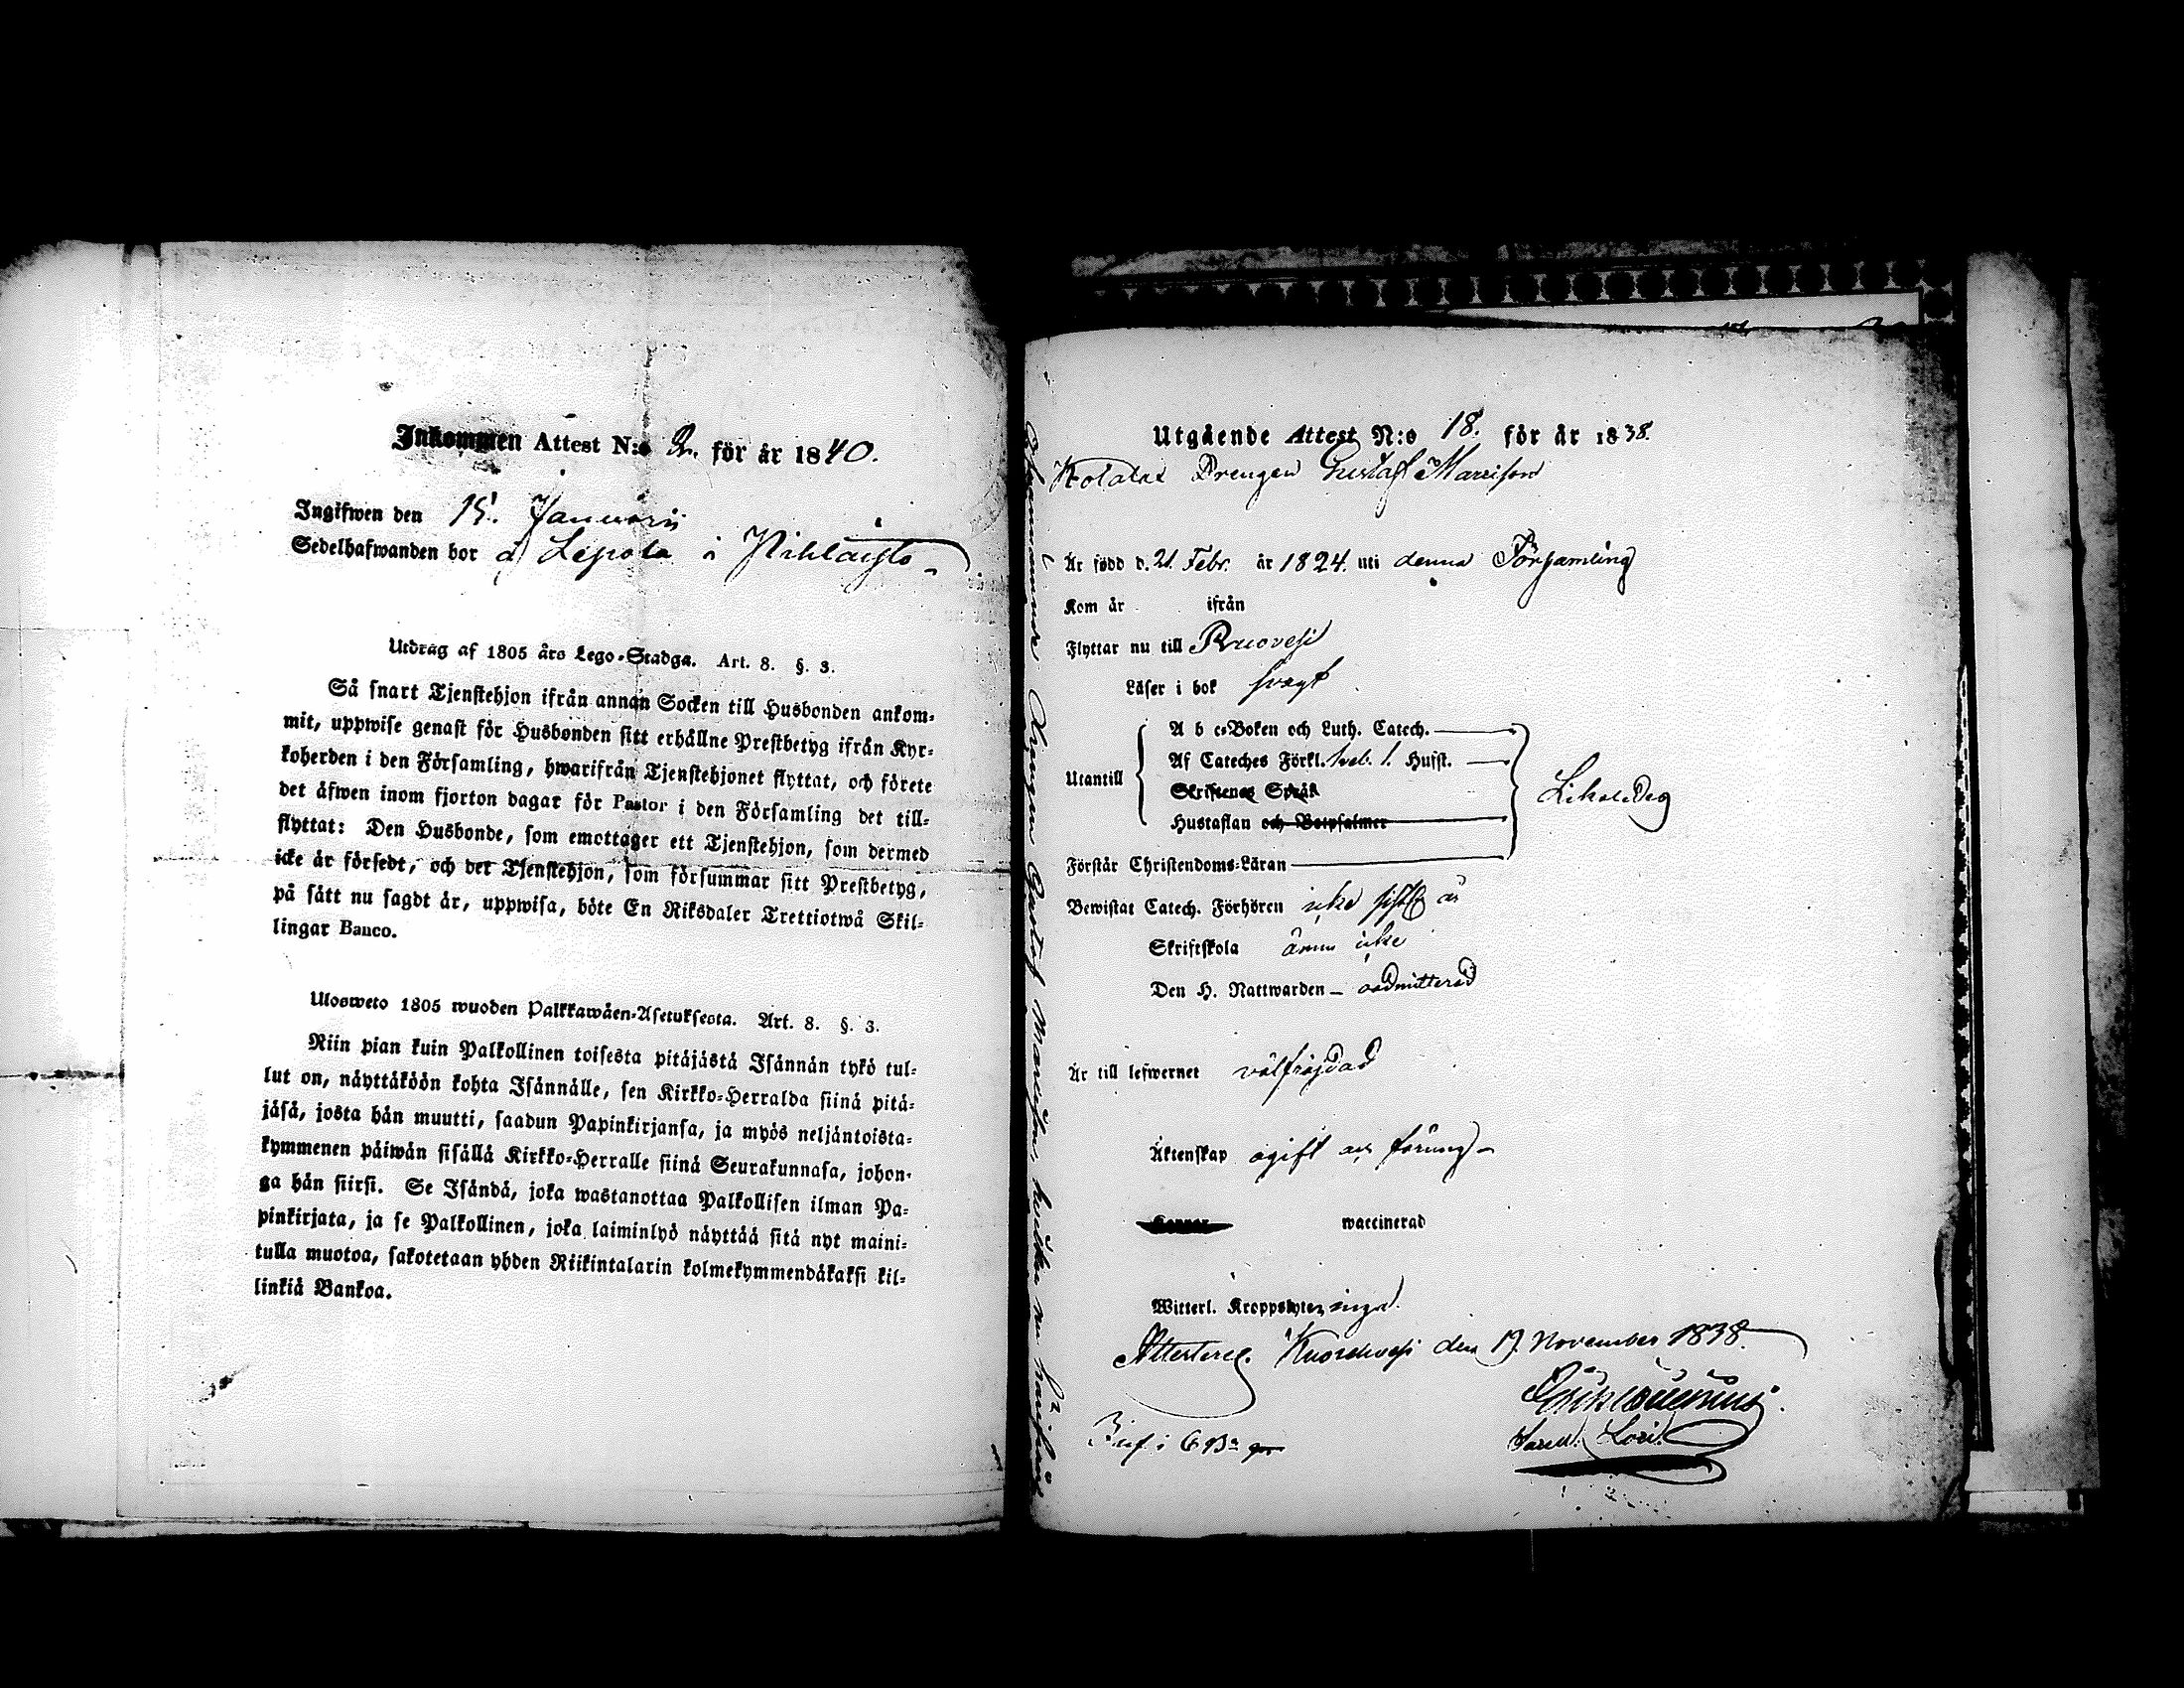 Inkommen Attest N:o 2. för år 1840.
Ingifwen den 15. Januarii
Sedelhafwanden bor å Lepola i Wihlaisto
Utdrag af 1805 års Lego-Stadga. Art. 8. §. 3.
Så snart Tjenstehjon ifrån annan Socken till Husbonden ankom-
mit, uppwise genast för Husbonden sitt erhållne Prestbetyg ifrån Kyr-
koherden i den Församling, hwarifrån Tjenstehjonet flyttat, och förete
det äfwen inom fjorton dagar för Pastor i den Församling det till-
flyttat: Den Husbonde, som emottager ett Tjenstehjon, som dermed
icke är försedt, och det Tjenstehjon, som försummar sitt Prestbetyg,
på sätt nu sagdt är, uppwisa, böte En Riksdaler Trettiotwå Skil-
lingar Banco.
Ulosweto 1805 wuoden Palkkawäen-Asetuksesta. Art. 8. §. 3.
Niin pian kuin Palkollinen toisesta pitäjästä Isännän tykö tul-
lut on, näyttäköön kohta Isännälle, sen Kirkko-Herralda siinä pitä-
jäsä, josta hän muutti, saadun Papinkirjansa, ja myös neljäntoista-
kymmenen päiwän sisällä Kirkko-Herralle siinä Seurakunnasa, johon-
ga hän siirsi. Se Isändä, joka wastanottaa Palkollisen ilman Pa-
pinkirjata, ja se Palkollinen, joka laiminlyö näyttää sitä nyt maini-
tulla muotoa, sakotetaan yhden Riikintalarin kolmekymmendäkaksi kil-
linkiä Bankoa.
Utgående Attest N:o 18. för år 1838.
Drengen Gustaf
Är född d. 21. Febr. år 1824. uti denna Församling
Kom år ifrån
Flyttar nu till Ruovesi
Läser i bok svagt
A b c-Boken och Luth. Catech.
Utantill Af Cateches Förkl. Hufst.
Skriftenes Språk
Hustaflan och Botpsalmer
Förstår Christendoms-Läran
Bewistat Catech. Förhören icke sistl. år
Skriftskola ännu icke
Den H. Nattwarden – oadmitterad
Är till lefwernet välfrejdad
Äktenskap ogift och
Koppor waccinerad
Witterl. Kroppslyten inga.
Attesterar. Kuorehvesi den 19. November 1838.